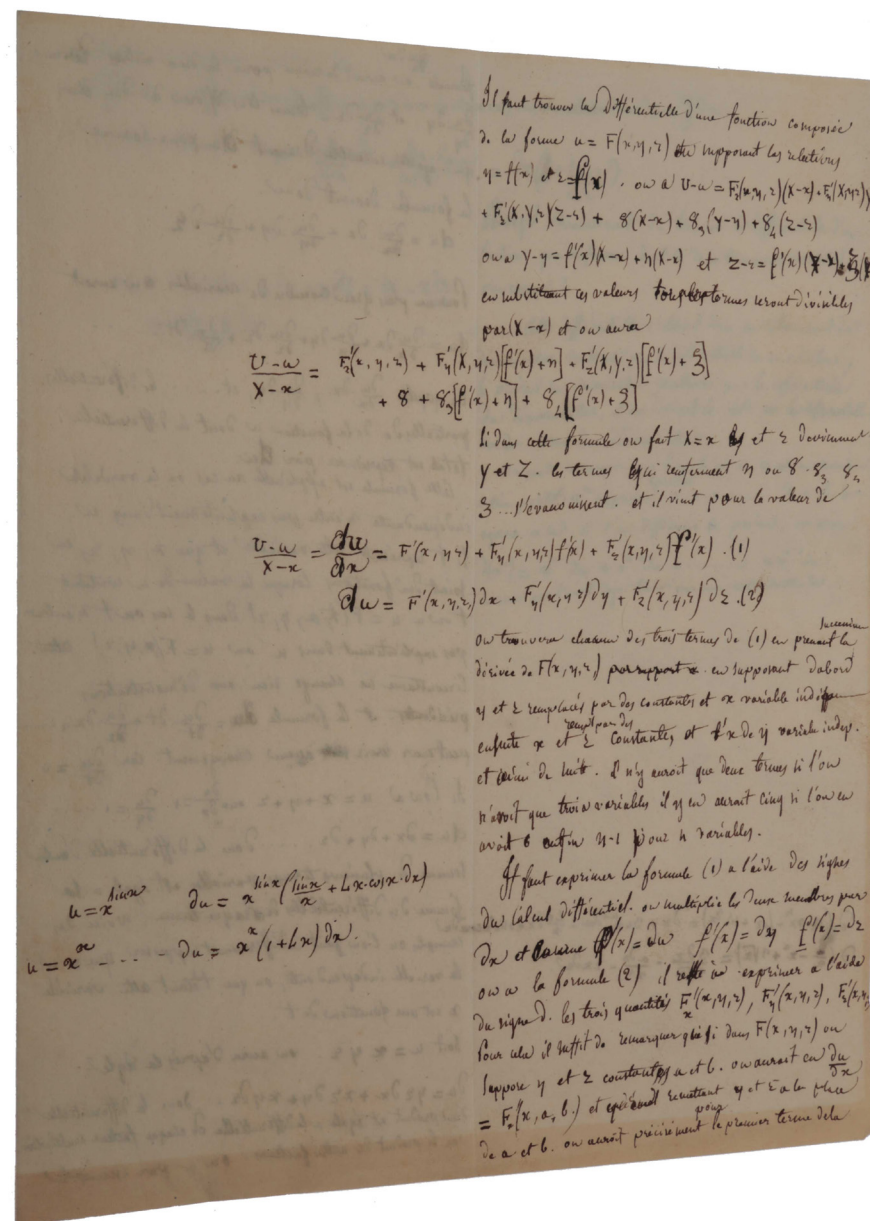 Il faut trouver la Différentielle d'une fonction composée
de la forme u = F(x, y, z) en supposant les relations
y = f(x) et z = f(x) . on a U-u = F'x(x, y, z)(X-x) + F'y(X, y, z)Y
+ F'z(X, Y, z)(Z-z) + 8(X-x) + 8₃(Y-y) + 8₄(Z-z)
on a Y-y = f'(x)(X-x) + η(X-x) et Z-z = f'(x)(X-x)+ξ(X
en substituant ces valeurs tous les termes seront divisibles
par (X-x) et on aura
U-u / X-x = F'x(x, y, z) + F'y(X, y, z)[f'(x)+η] + F'z(X, Y, z)[f'(x)+ξ]
+ 8 + 8₃[f'(x)+η] + 8₄[f'(x)+ξ]
Si dans cette formule on fait X=x y et z deviennent
Y et Z. les termes qui renferment η ou 8 8₃ 8₄
ξ ... s'évanouissent. et il vient pour la valeur de
U-u / X-x = du/dx = F'(x, y z) + F'y(x, y, z) f'(x) + F'z(x, y, z) f'(x) . (1)
du = F'(x, y, z,) ∂x + F'y(x, y z) ∂y + F'z(x, y, z) ∂z .(2)
on trouvera chacun des trois termes de (1) en prenant la
dérivée de F(x, y, z) par rapport x en supposant dabord
y et z remplacés par des constantes et x variable
ensuite x et z remp par des constantes et f'x de y variable indep.
et ainsi de suite. il n'y auroit que deux termes si l'on
n'avoit que trois variables il y en aurait cinq si l'on en
avoit 6 enfin n-1 pour n variables.
Il faut exprimer la formule (1) a l'aide des signes
du Calcul différentiel. on multiplie les deux membres par
∂x et comme (x) = ∂u f'(x) = ∂y f'(x) = ∂z
on a la formule (2) il reste a exprimer a l'aide
du signe d. les trois quantités F'x(x, y, z), F'y(x, y, z), F'z(x, y,
Pour cela il suffit de remarquer que si dans F(x, y, z) on
suppose y et z constantes a et b. on aurait eu ∂u/∂x
= F'x(x, a, b.) et remettant y et z a la place
de a et b. on auroit précisément pour le premier terme de la
u = x^sin x ∂u = x^sin x (sin x / x + Lx · cos x · ∂x)
u = x^x - ... - ∂u = x^x (1 + Lx) ∂x.